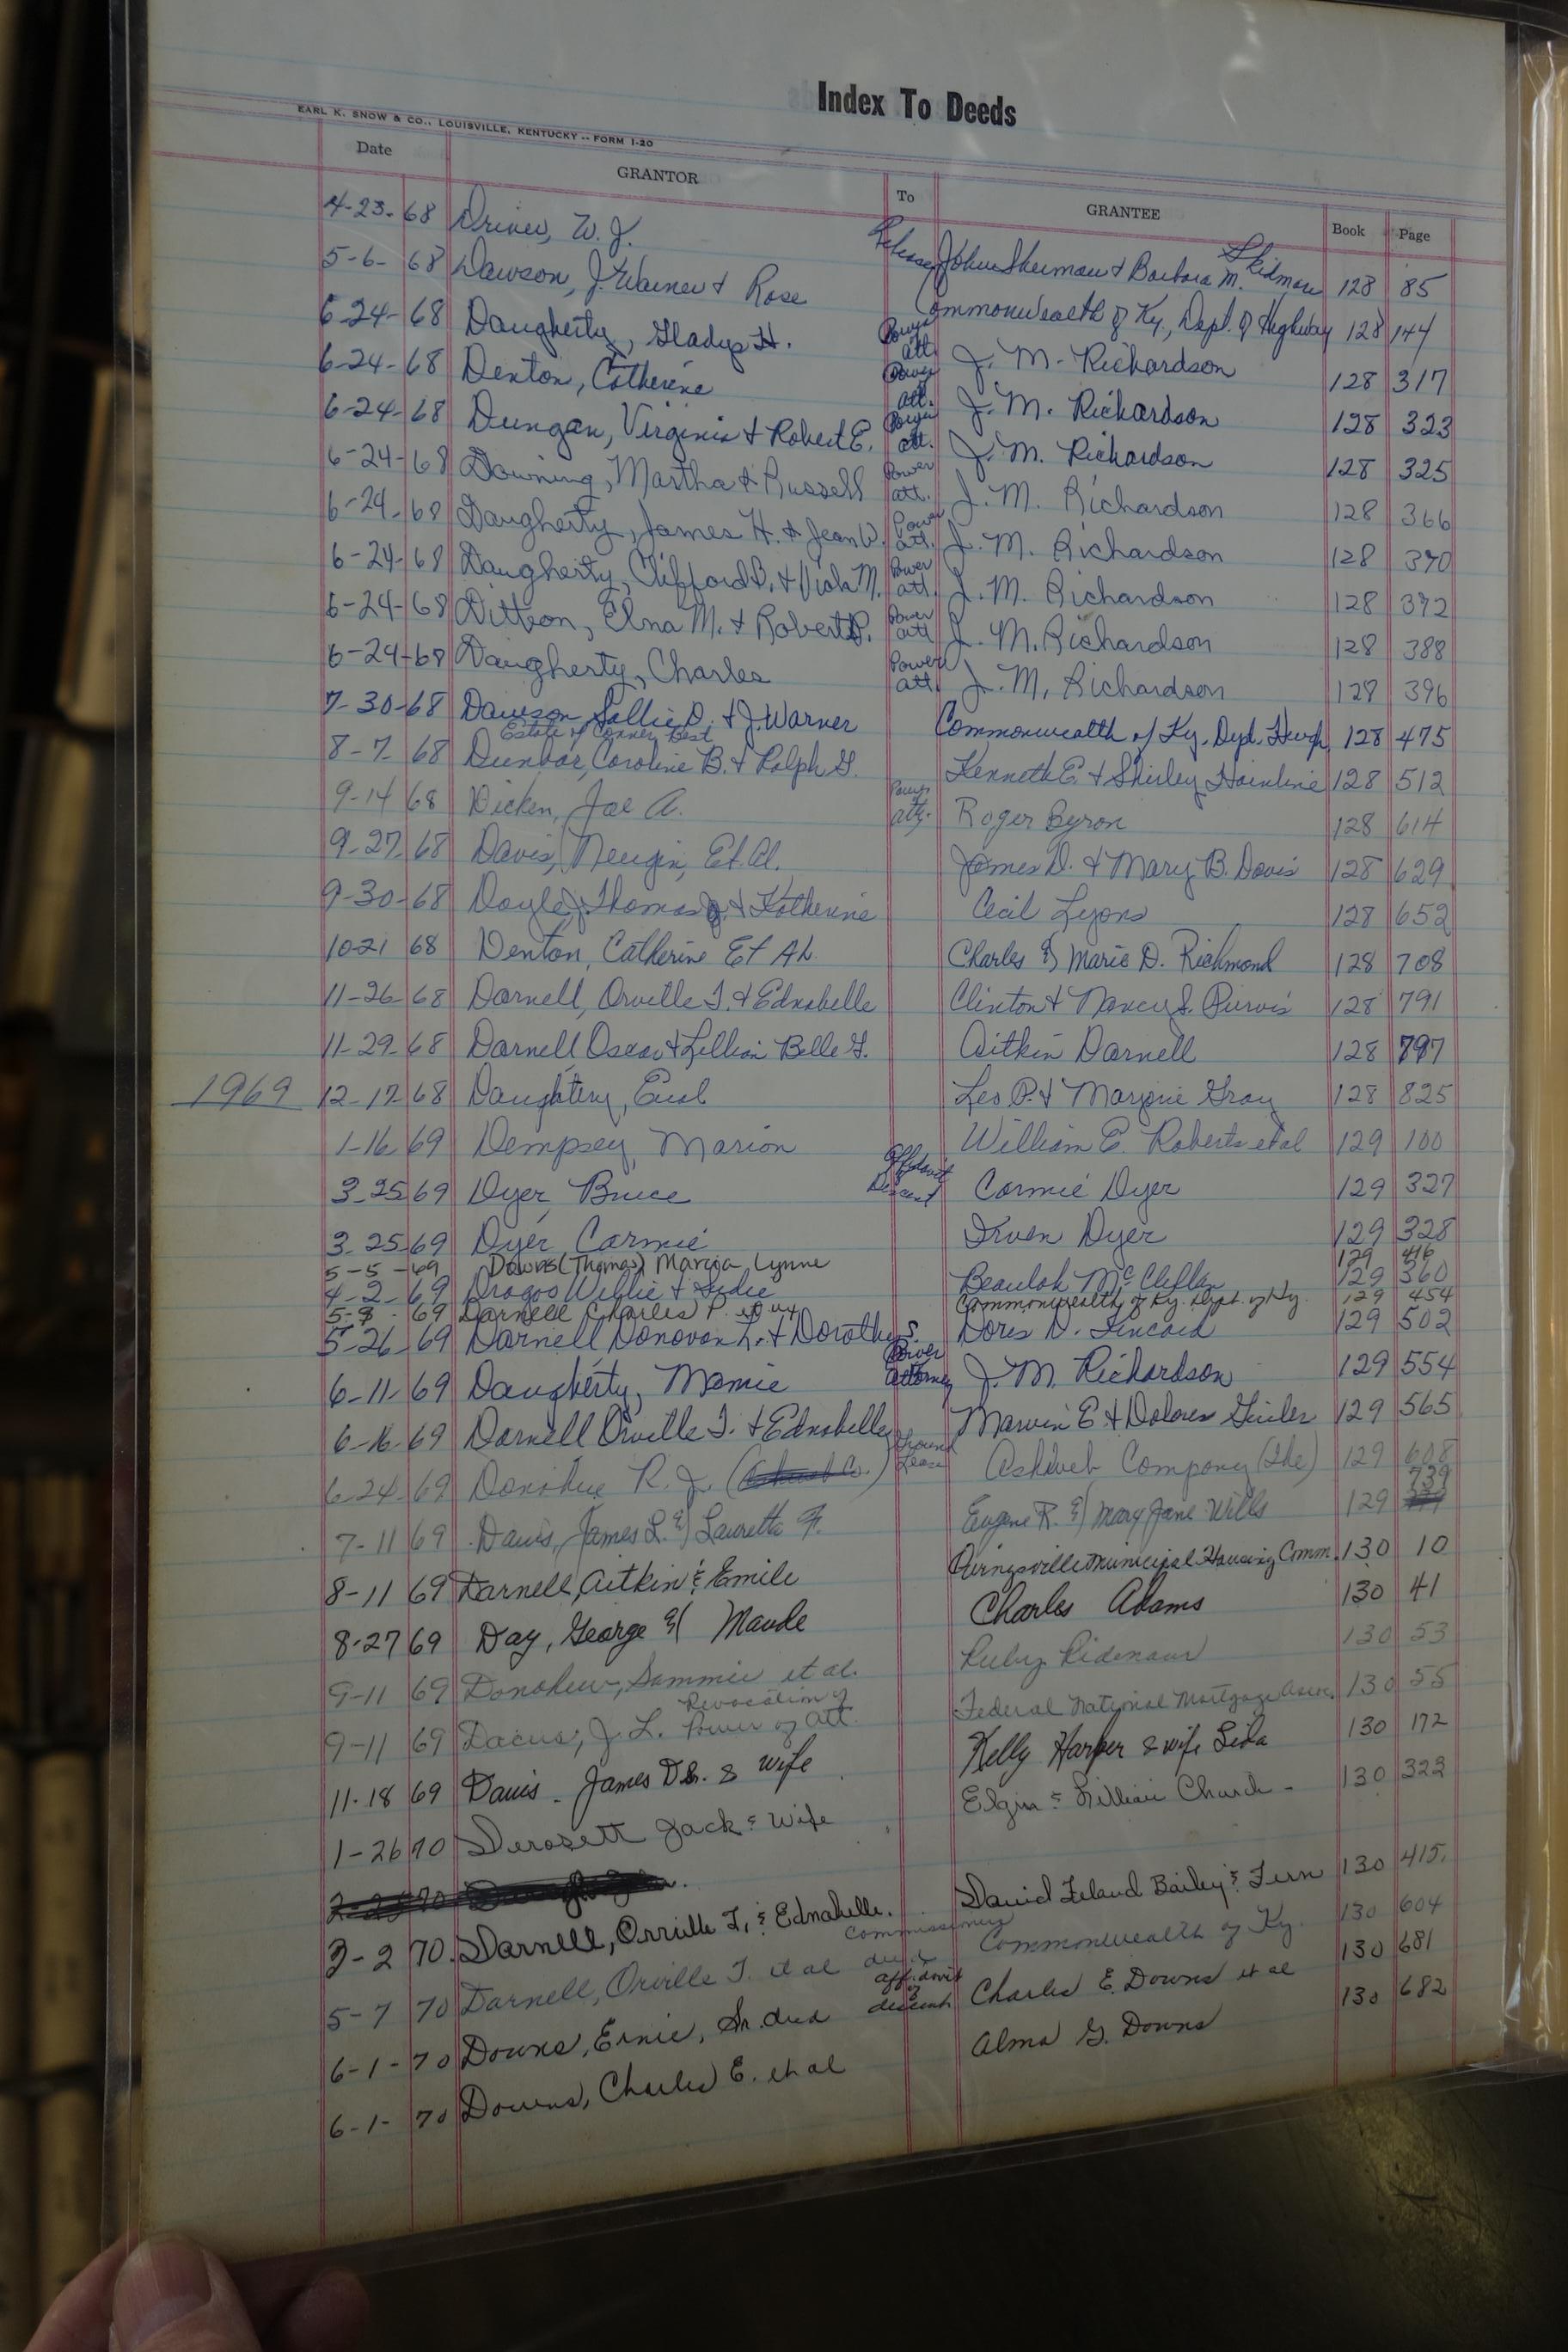 Index To Deeds
EARL K. SNOW & CO., LOUISVILLE, KENTUCKY -- FORM 1-20
Date GRANTOR To GRANTEE Book Page
4-23-68 Driver, W. J. Release John Sherman & Barbara M. Skidmore 128 85
5-6-68 Dawson, J. Warner & Rose Commonwealth of Ky., Dept. of Highway 128 144
6-24-68 Daugherty, Gladys H. Power att. J. M. Richardson 128 317
6-24-68 Denton, Catherine Power att. J. M. Richardson 128 323
6-24-68 Dungan, Virginia & Robert E. Power att. J. M. Richardson 128 325
6-24-68 Downing, Martha & Russell Power att. J. M. Richardson 128 366
6-24-68 Daugherty, James H. & Jean W. Power att. J. M. Richardson 128 370
6-24-68 Daugherty, Clifford B. & Viola M. Power att. J. M. Richardson 128 372
6-24-68 Dittson, Elna M. & Robert P. Power att J. M. Richardson 128 388
6-24-68 Daugherty, Charles Power att. J. M. Richardson 128 396
7-30-68 Dawson, Sallie D. & J. Warner Commonwealth of Ky. Dept. High 128 475
Estate of Conner Best
8-7-68 Dunbar, Caroline B. & Ralph G. Kenneth E. & Shirley Hainline 128 512
9-14 68 Dicken, Joe A. Power atty. Roger Byron 128 614
9-27-68 Davis, Et. Al. James D. & Mary B. Davis 128 629
9-30-68 Doyle, Thomas & Katherine Cecil Lyons 128 652
10-21 68 Denton, Catherine Et Al. Charles & Marie D. Richmond 128 708
11-26-68 Darnell, Orville T. & Ednabelle Clinton & Nancy S. Purvis 128 791
11-29-68 Darnell, Oscar & Lillian Belle G. Aitkin Darnell 128 797
1969 12-17-68 Daughtery, Eual Leo P. & Marjorie Gray 128 825
1-16-69 Dempsey, Marion William E. Roberts et al 129 100
3-25-69 Dyer, Bruce Affidavit Descent Carmie Dyer 129 327
3-25-69 Dyer, Carmie Irven Dyer 129 328
5-5-69 Downs (Thomas) Marcia Lynne 129 416
4-2-69 Dragos Willie & Sadie Beaulah McClellan 129 360
5-8-69 Darnell Charles P. et ux Commonwealth of Ky. Dept. of Hy. 129 454
5-26-69 Darnell Donovan L. & Dorothy S. Dores D. Kincaid 129 502
6-11-69 Daugherty, Mamie Power Attorney J. M. Richardson 129 554
6-16-69 Darnell Orville T. & Ednabelle Marvin E. & Dolores Guiler 129 565
6-24-69 Donohue R. J. Ground Lease Ashweb Company (The) 129 608
7-11 69 Davis, James L. & Lauretta F. Eugene R. & Mary Jane Wills 129 739
8-11 69 Darnell, Aitkin & Emile Owingsville Municipal Housing Comm. 130 10
8-27 69 Day, George & Maude Charles Adams 130 41
9-11 69 Donohew, Sammie et al. Ruby Ridenour 130 53
9-11 69 Dacus, J. L. Revocation of Power of Att. Federal National Mortgage Assn. 130 55
11-18 69 Davis, James D. Sr. & wife Kelly Harper & wife Lida 130 172
1-26 70 Derosett Jack & wife Elgin & Lillian Church 130 323
3-2 70. Darnell, Orville T. & Ednabelle. David Leland Bailey & Fern 130 415.
5-7 70 Darnell, Orville T. et al Commissioners deed Commonwealth of Ky. 130 604
6-1-70 Downs, Ernie, Sr. decd affidavit of descent Charles E. Downs et al 130 681
6-1-70 Downs, Charles E. et al Alma G. Downs 130 682